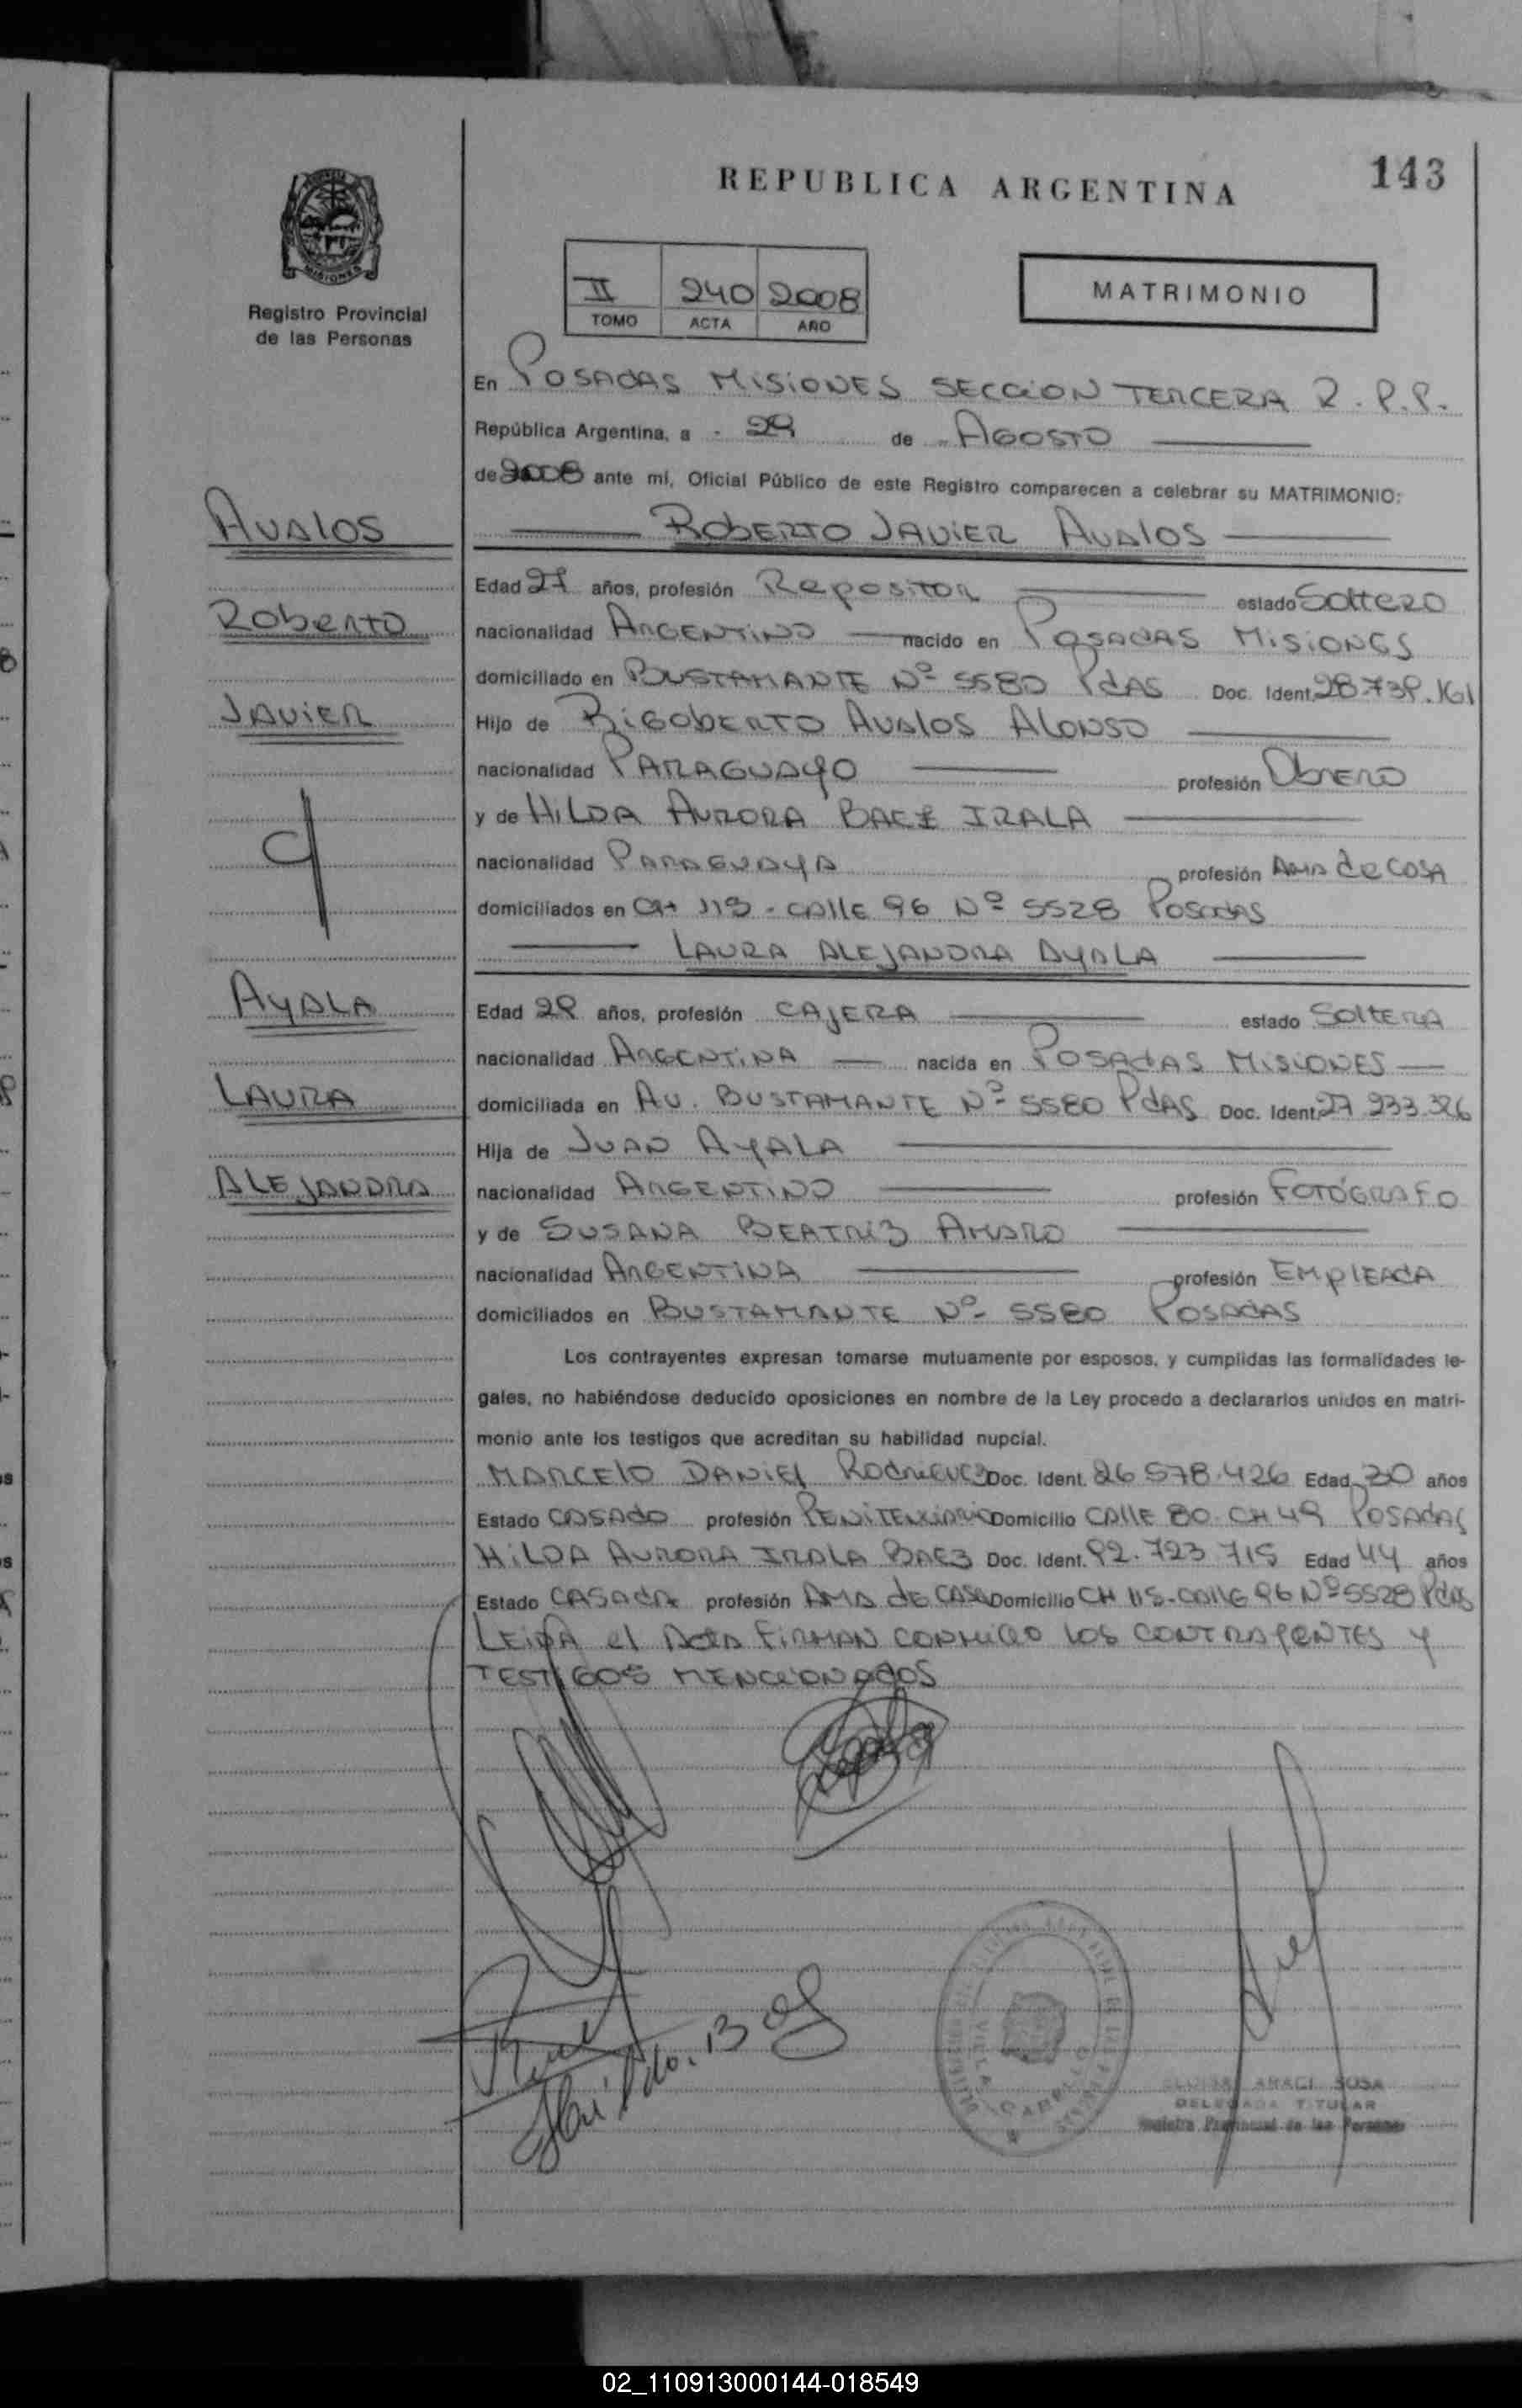 143
REPUBLICA ARGENTINA
MISIONES
Registro Provincial
de las Personas
II 240 2008
TOMO ACTA AÑO
MATRIMONIO
En POSADAS MISIONES SECCION TERCERA R.P.P.
República Argentina, a 29 de AGOSTO
de 2008 ante mí, Oficial Público de este Registro comparecen a celebrar su MATRIMONIO:
AVALOS
ROBERTO JAVIER AVALOS
Edad 27 años, profesión REPOSITOR estado SOLTERO
ROBERTO
nacionalidad ARGENTINO nacido en POSADAS MISIONES
domiciliado en BUSTAMANTE Nº 5580 PdAS Doc. Ident. 28.739.161
JAVIER
Hijo de RIGOBERTO AVALOS ALONSO
nacionalidad PARAGUAYO profesión OBRERO
y de HILDA AURORA BAEZ IRALA
nacionalidad PARAGUAYA profesión AMA de CASA
domiciliados en CH 115 - CALLE 96 Nº 5528 POSADAS
LAURA ALEJANDRA AYALA
AYALA
Edad 29 años, profesión CAJERA estado SOLTERA
nacionalidad ARGENTINA nacida en POSADAS MISIONES
LAURA
domiciliada en AV. BUSTAMANTE Nº 5580 PdAS Doc. Ident. 27 233.326
Hija de JUAN AYALA
ALEJANDRA
nacionalidad ARGENTINO profesión FOTÓGRAFO
y de SUSANA BEATRIZ AMARO
nacionalidad ARGENTINA profesión EMPLEADA
domiciliados en BUSTAMANTE Nº 5580 POSADAS
Los contrayentes expresan tomarse mutuamente por esposos, y cumplidas las formalidades le-
gales, no habiéndose deducido oposiciones en nombre de la Ley procedo a declararlos unidos en matri-
monio ante los testigos que acreditan su habilidad nupcial.
MARCELO DANIEL RODRIGUEZ Doc. Ident. 26 578.426 Edad 30 años
Estado CASADO profesión PENITENCIARIO Domicilio CALLE 80. CH 49 POSADAS
HILDA AURORA IRALA BAEZ Doc. Ident. 92.723 715 Edad 44 años
Estado CASADA profesión AMA de CASA Domicilio CH 115-CALLE 96 Nº 5528 PdAS
LEIDA el ACTA FIRMAN CONMIGO LOS CONTRAYENTES Y
TESTIGOS MENCIONADOS
ARACI SOSA
DELEGADA TITULAR
Registro Provincial de las Personas
02_110913000144-018549